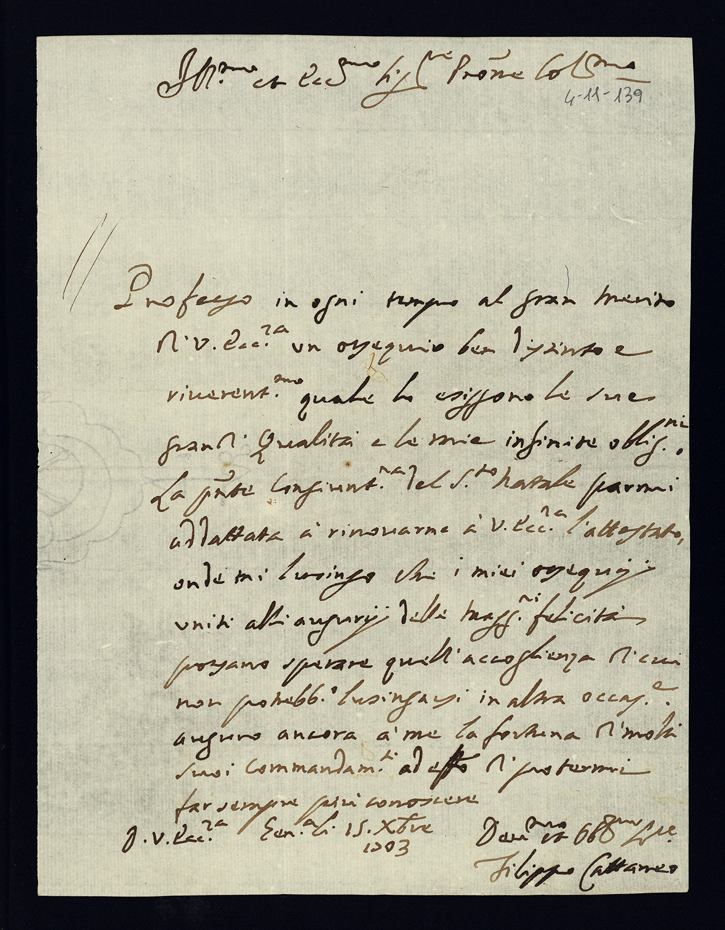 Ill.mo et Ecc.mo Sig.re Pròne Col.mo
4-11-139
Professo in ogni tempo al gran merito
di V. Ecc.za un ossequio ben distinto e
riverent.mo quale lo esiggono le sue
grandi Qualità e le mie infinite oblig.ni
La pñte Congiunt.ra del S.to Natale parmi
addattata à rinovarne à V. Ecc.za l'attestato,
onde mi lusingo che i miei ossequij
uniti alli augurij delle magg.ri felicità
possano sperare quell'accoglienza di cui
non potrebb.o lusingarsi in altra occas.e.
auguro ancora à me la fortuna di molti
suoi commandam.ti ad effo di potermi
far sempre più conoscere
D. V. Ecc.za Gen.a li 15. Xbre Dev.mo et Obb.mo Sre.
1703
Filippo Cattaneo